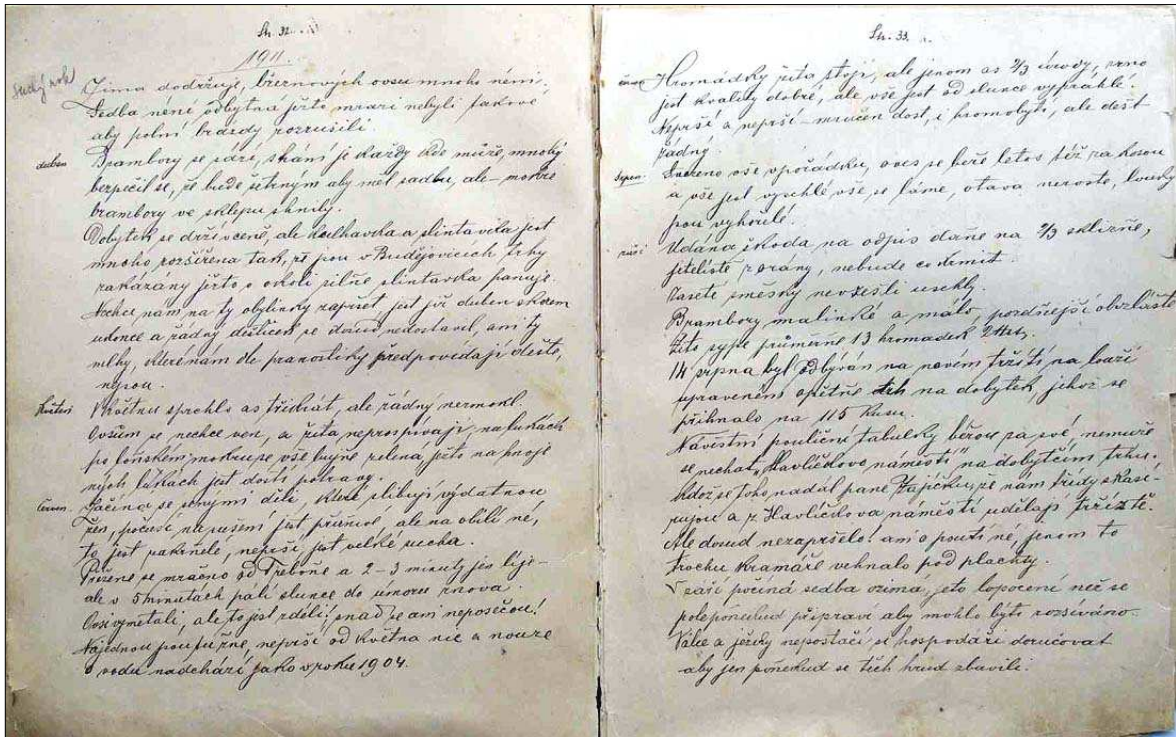 Str. 32.
1911.
Suchý rok
Zima dodržuje, březnových ovsů mnoho není.
Sedba není odbytna ježto mrazi nebyli takové,
aby polní brázdy rozrušili.
duben
Brambory se sází, shání je každý kde může, mnohý
bezpečil se, že bude šetrným aby měl sadbu, ale – mokré
brambory ve sklepu shnily.
Dobytek se drží v ceně, ale kulhavka a slintavka jest
mnoho rozšířena tak, že jsou v Budějovicích trhy
zakázány ježto v okolí silně slintavka panuje.
Nechce nám na ty obylinky zapršet jest již duben skorem
u konce a řádný deštíček se dosud nedostavil, ani ty
mlhy, které nám dle pranostiky předpovídají deště,
nejsou.
Květen
V květnu sprchlo as třikrát, ale řádný nezmokl.
Ovsům se nechce ven, a žita neprospívají, na lukách
po loňském mokru se vše bujně zelená, ježto na hnoje
lukách jest dosti potravy.
Červen.
Začíná se senými díle, které slibují výdatnou
žeň, počasí na sušení jest příznivé, ale na obilí né,
to jest zakrnělé, neprší, jest velké sucha.
Přižene se mračno od Třeboně a 2–3 minuty jen lije –
ale v 5 minutách pálí slunce do úmoru znova.
Ovsy vymetali, ale to jest zdélí, snad se ani neposečou!
Najednou jsou tu žně, neprší od května nic a nouze
o vodu nadchází jako v roku 1904.
Str. 33.
Hromádky žita stojí, ale jenom as 2/3 úrody, zrno
jest kvality dobré, ale vše jest od slunce vyprahlé.
Neprší a neprší – mračen dost, i hromobytí, ale dešť
žádný.
Srpen.
Svezeno vše v pořádku, oves se beře letos též za kosou
a vše jest vyschlé vše se láme, otava neroste, louky
jsou vyhořelé.
Udána škoda na odpis daně na 2/3 sklizně,
jeteliště zorány, nebude co krmit.
Zaseté směsky nevzešli uschly.
Brambory malinké a málo, pozdnější obzvláště
Žito sype průměrně 13 hromádek 2 Hkt.
14 srpna byl odbýván na novém tržišti na
upraveném opětně trh na dobytek, jehož se
přihnalo na 115 kusu.
Návěstní pouliční tabulky běrou za své, nemuže
se nechat „Havlíčkovo náměstí" na dobytčím trhu.
Kdož se toho nadál pane Zajíčku, že nám třídy skasí-
rujou a z Havlíčkova naměstí udělají tržiště.
Ale dosud nezapršelo! ani o pouti ne, jenom to
trochu kramáře vehnalo pod plachty.
V září počíná sedba ozimá, jeto lopocení než se
pole poněkud připraví aby mohlo býti rozsíváno.
Válce a ježky nepostačí si hospodáři doručovat
aby jen poněkud se těch hrud zbavili.